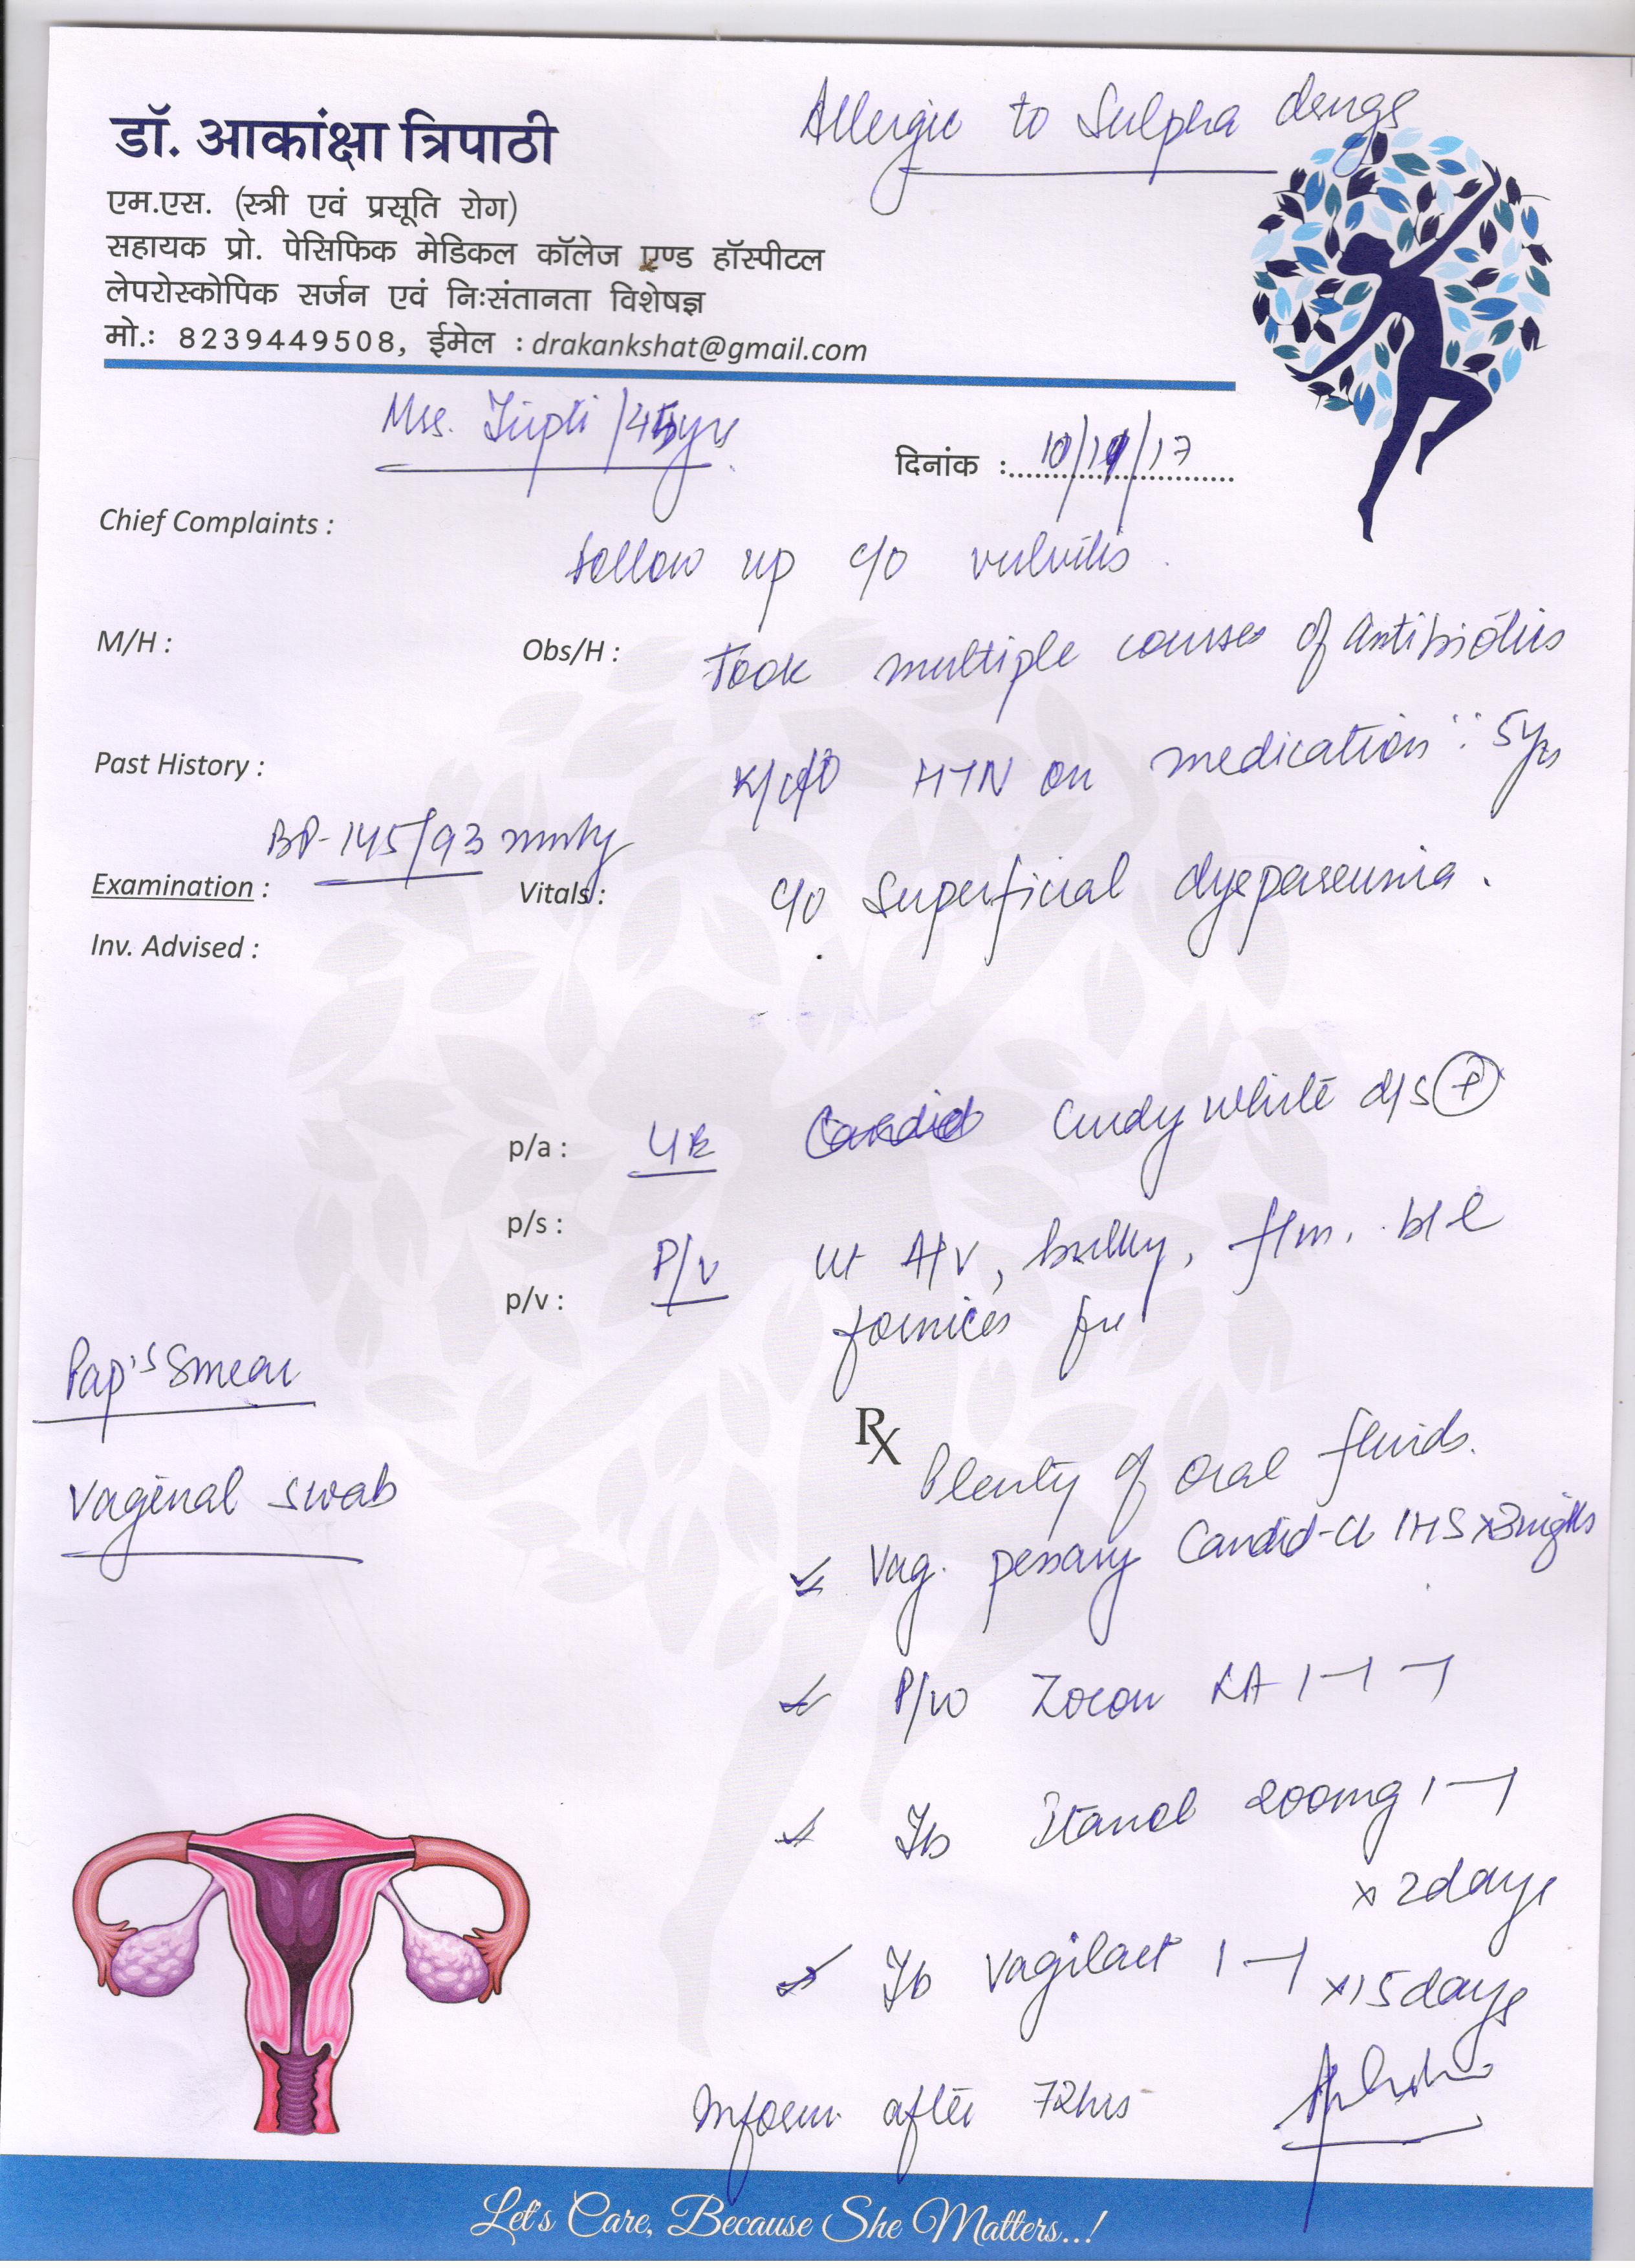 Allergic to Sulpha drugs
डॉ. आकांक्षा त्रिपाठी
एम.एस. (स्त्री एवं प्रसूति रोग)
सहायक प्रो. पेसिफिक मेडिकल कॉलेज एण्ड हॉस्पीटल
लेपरोस्कोपिक सर्जन एवं निःसंतानता विशेषज्ञ
मो.: 8239449508, ईमेल : drakankshat@gmail.com
Mrs. Tripti /45yrs
दिनांक : 10/ /17
Chief Complaints :
follow up c/o vulvitis
M/H : Obs/H : Took multiple courses of Antibiotics
Past History : K/c/o HTN on medication ∵ 5yrs
BP- 145/93 mmHg
Examination : Vitals : c/o Superficial dyspareunia.
Inv. Advised :
p/a : Curdy white d/s +
p/s :
P/v Ut A/V, bulky, f/m, b/l
p/v : fornices free
Pap's Smear
Rx Plenty of oral fluids.
Vaginal swab
Vag. pessary Candid-Cl 1HS x3nights
P/w Zocon
Tb Itanol 200mg 1—1
x 2days
Tb Vagilact 1—1 x15days
Inform after 72hrs
Let's Care, Because She Matters...!